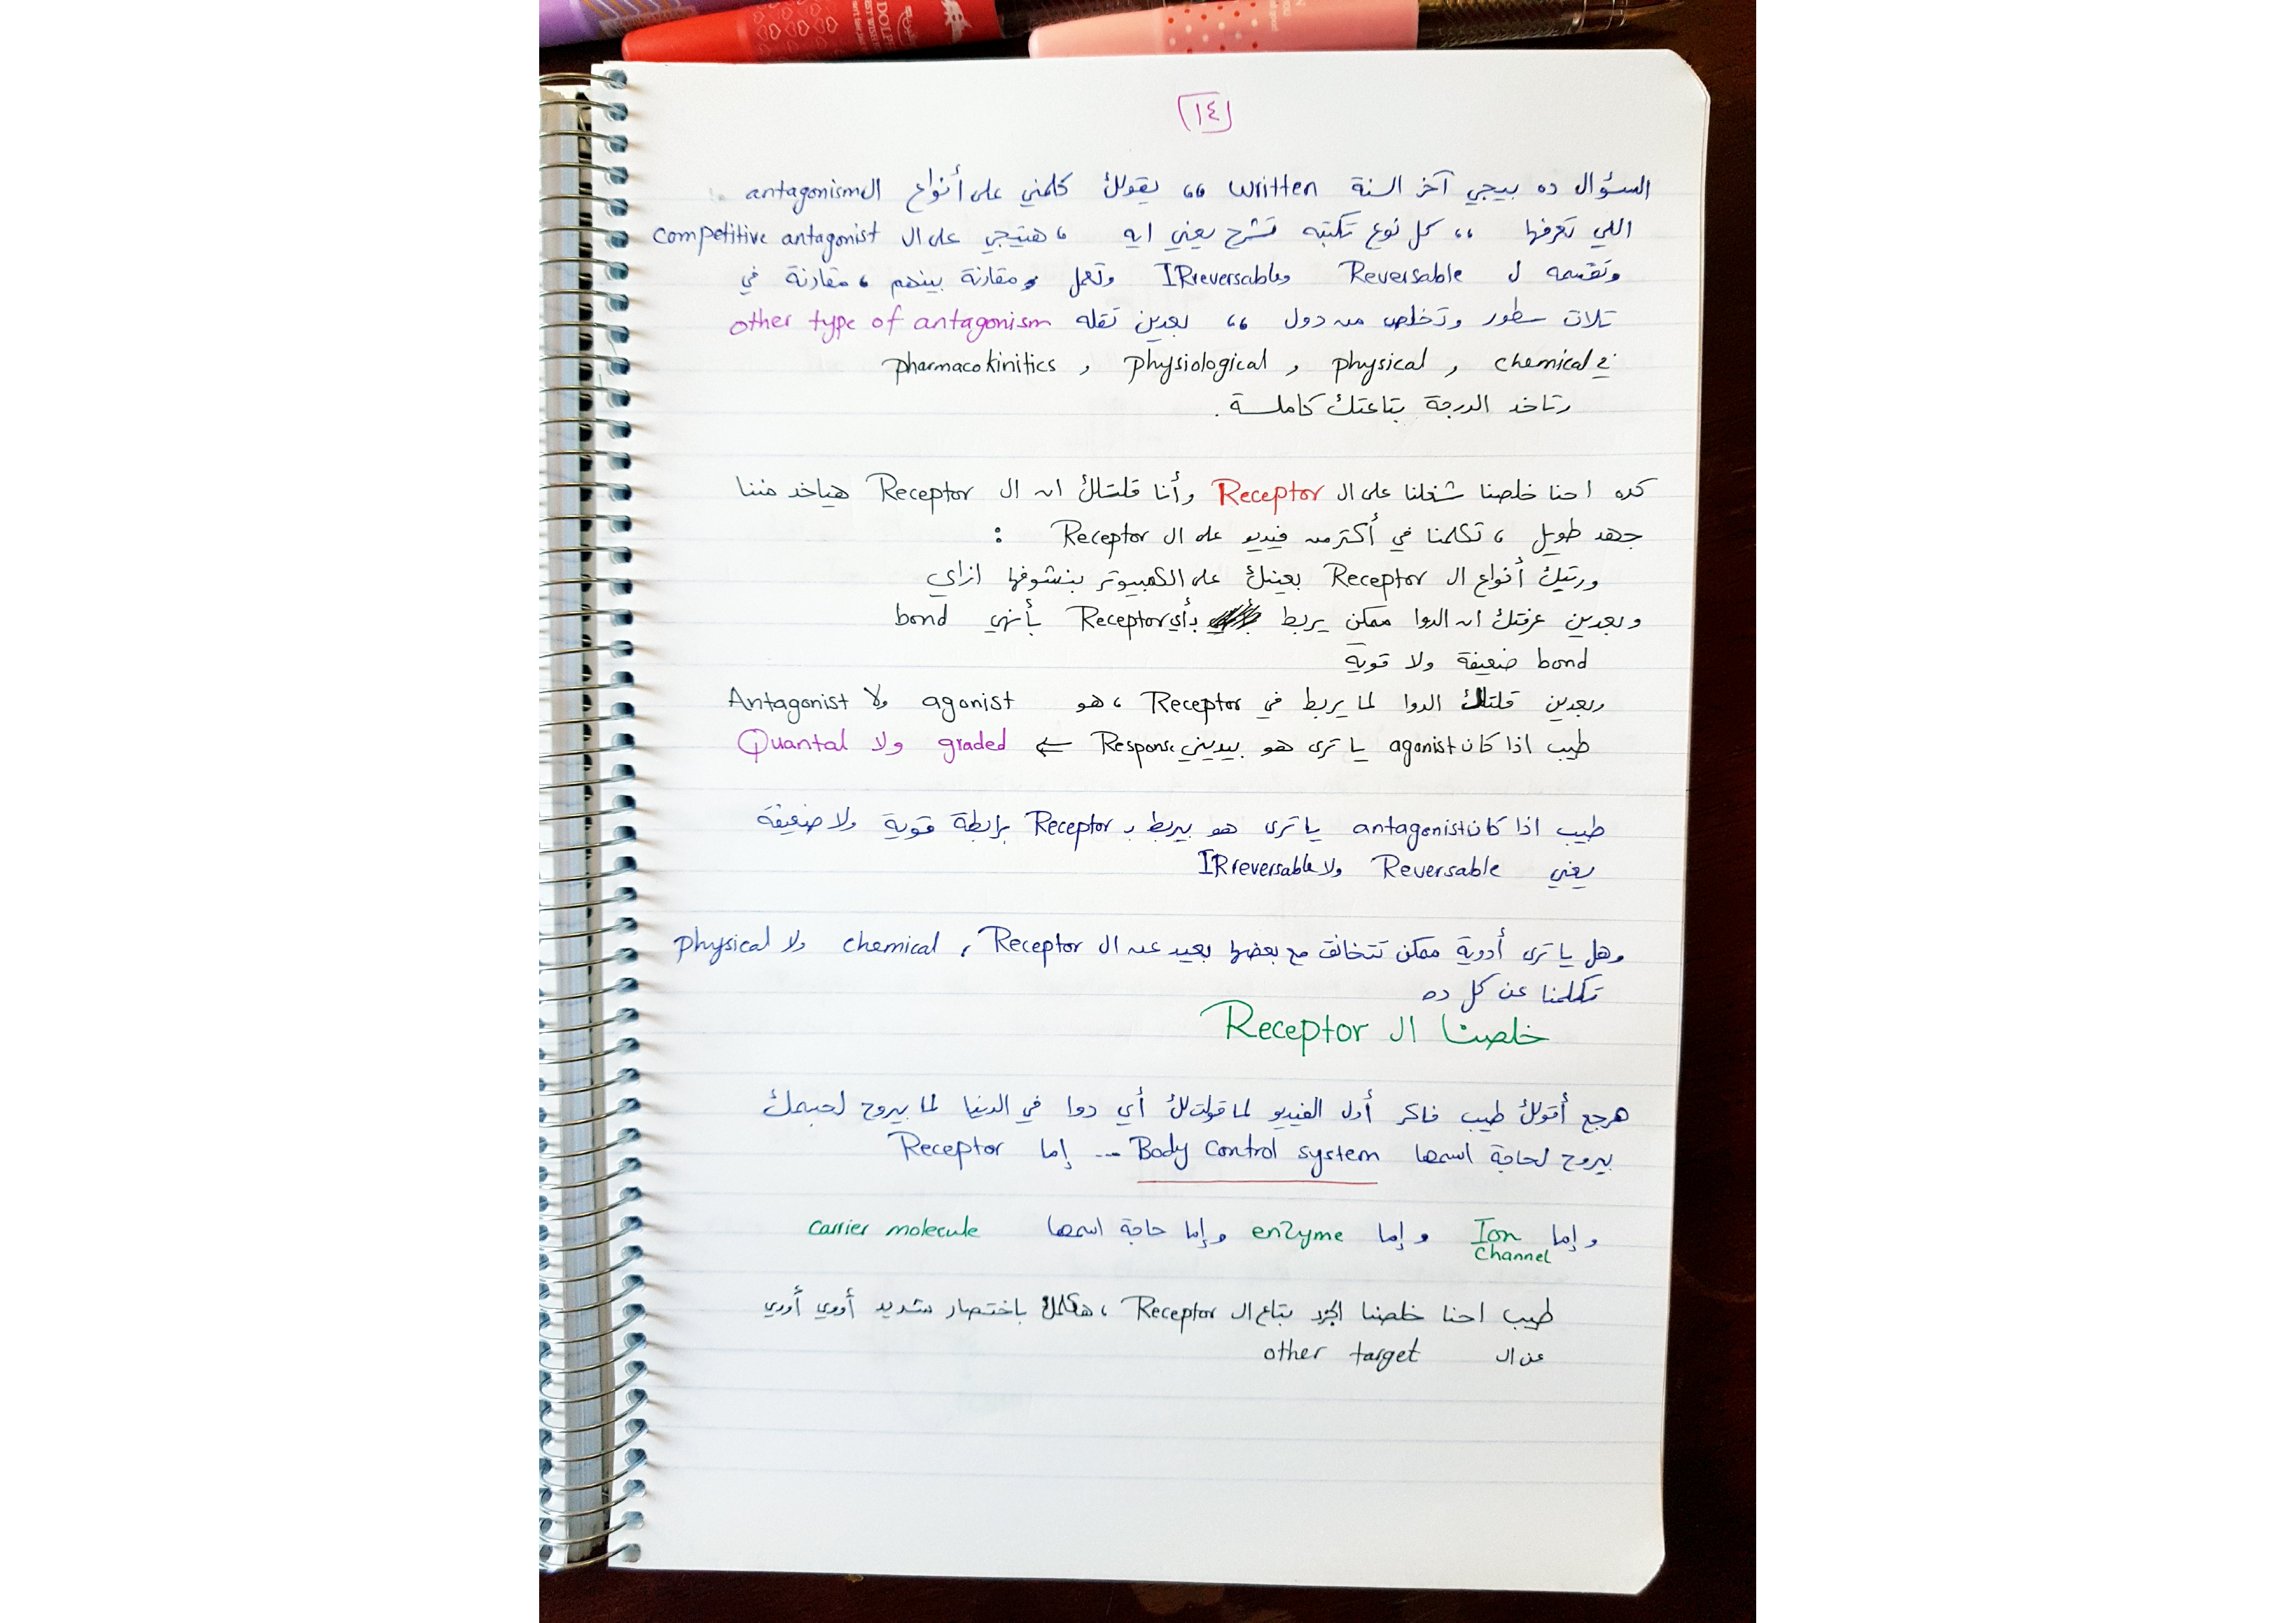 ١٤
السؤال ده بيجي آخر السنة written ،، يقولك كلمني على أنواع ال antagonism
اللي تعرفها ،، كل نوع تكتبه تشرح يعني ايه ، هتيجي على ال competitive antagonist
وتقسمه ل Reversable و IRreversable وتعمل مقارنة بينهم ، مقارنة في
تلات سطور وتخلص من دول ،، بعدين تقله other type of antagonism
chemical , physical , physiological , pharmacokinitics
وتاخد الدرجة بتاعتك كاملة .
كده احنا خلصنا شغلنا على ال Receptor وأنا قلتلك ان ال Receptor هياخد مننا
جهد طويل ، تكلمنا في أكتر من فيديو عل ال Receptor :
وريتك أنواع ال Receptor بعينك على الكمبيوتر بنشوفها ازاي
وبعدين عرفتك ان الدوا ممكن يربط بأي Receptor بأنهي bond
bond ضعيفة ولا قوية
وبعدين قلتلك الدوا لما يربط في Receptor ، هو agonist ولا Antagonist
طيب اذا كان agonist يا ترى هو بيديني Response ⇐ graded ولا Quantal
طيب اذا كان antagonist يا ترى هو بيربط بـ Receptor برابطة قوية ولا ضعيفة
يعني Reversable ولا IRreversable
وهل يا ترى أدوية ممكن تتخانق مع بعضها بعيد عن ال Receptor , chemical ولا physical
تكلمنا عن كل ده
خلصنا ال Receptor
هرجع أقولك طيب فاكر أول الفيديو لما قولتلك أي دوا في الدنيا لما بيروح لجسمك
بيروح لحاجة اسمها Body control system ... إما Receptor
وإما Ion channel وإما enzyme وإما حاجة اسمها carrier molecule
طيب احنا خلصنا الجزء بتاع ال Receptor ، هكلمك باختصار شديد أووي أووي
عن ال other target